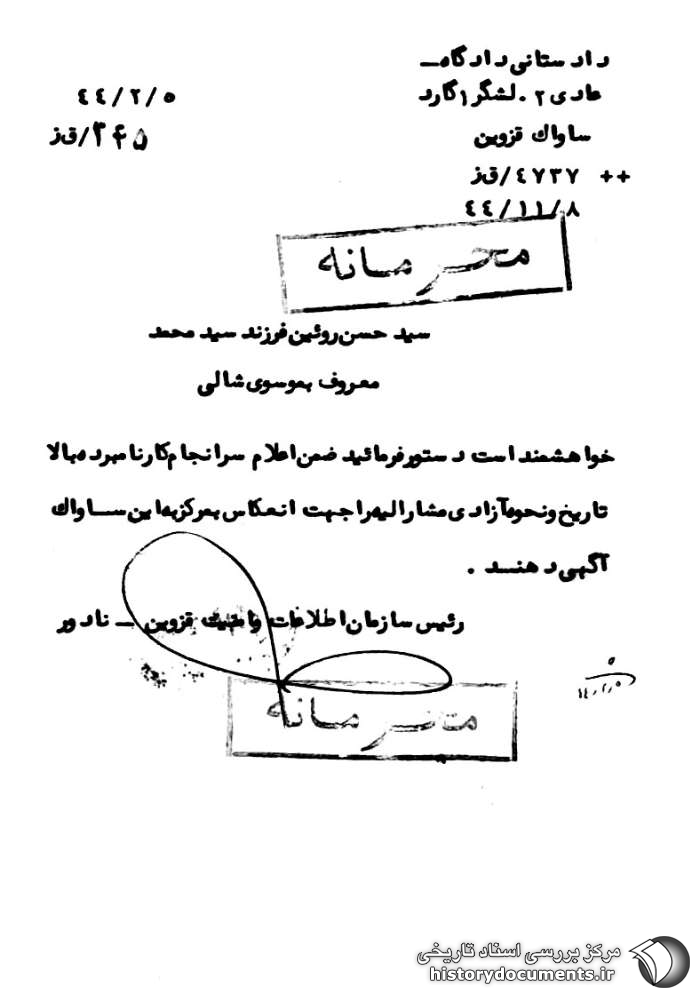 دادستانی دادگاه
عادی ۲ ـ لشگر ۱ گارد
٤٤/٢/٥
ساواك قزوین
۳۴۵/ق‌ز
++ ٤٧٣٧/ق‌ز
٤٤/١١/٨
محرمانه
سید حسن روئین فرزند سید محمد
معروف بموسوی شالی
خواهشمند است دستور فرمائید ضمن اعلام سرانجام کار نامبرده بالا
تاریخ و نحوه آزادی مشارالیه را جهت انعکاس بمرکز باین ســاواك
آگهی دهنـد .
رئیس سازمان اطلاعات وامنیت قزوین ـ نادور
محرمانه
مرکز بررسی اسناد تاریخی
historydocuments.ir